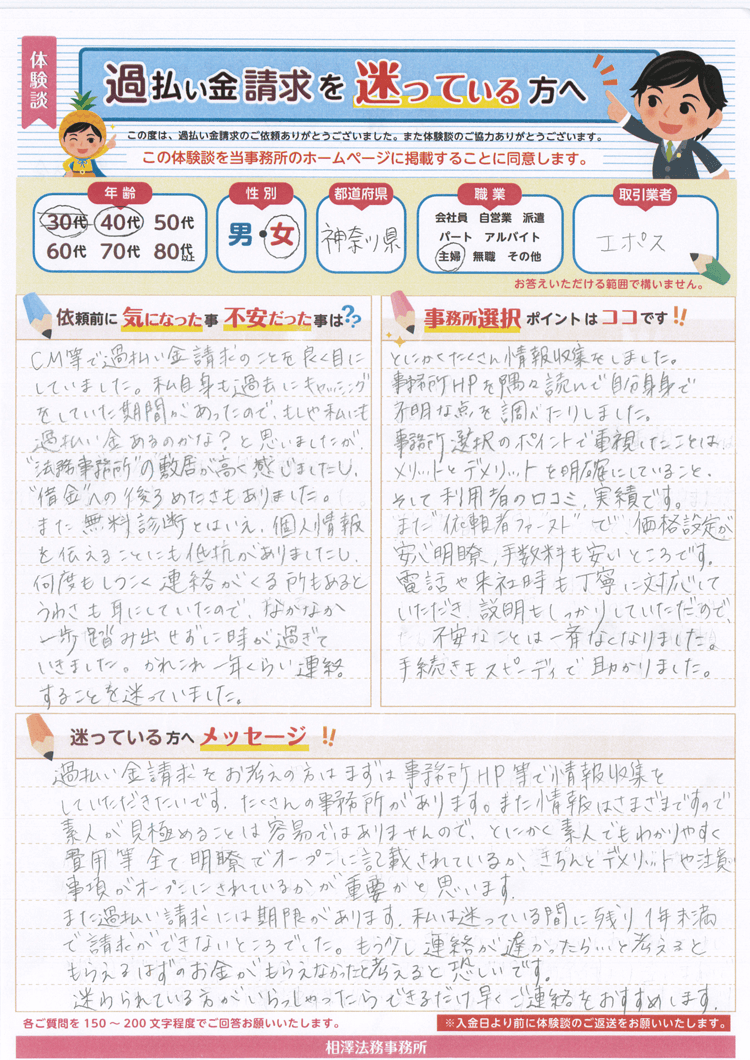 体験談
過払い金請求を 迷っている 方へ
この度は、過払い金請求のご依頼ありがとうございました。また体験談のご協力ありがとうございます。
この体験談を当事務所のホームページに掲載することに同意します。
年齢
30代 40代 50代
60代 70代 80代以上
性別
男・女
都道府県
神奈川県
職業
会社員 自営業 派遣
パート アルバイト
主婦 無職 その他
取引業者
エポス
お答えいただける範囲で構いません。
依頼前に 気になった事 不安だった事は??
CM等で過払い金請求のことを良く目に
していました。私自身も過去にキャッシング
をしていた期間があったので、もしや私にも
過払い金あるのかな?と思いましたが
"法務事務所"の敷居が高く感じましたし、
"借金"への後ろめたさもありました。
また無料診断とはいえ、個人情報
を伝えることにも低抗がありましたし、
何度もしつこく連絡がくる所もあると
うわさも耳にしていたので、なかなか
一歩踏み出せずに時が過ぎて
いきました。かれこれ一年くらい連絡
することを迷っていました。
事務所選択 ポイントは ココです!!
とにかくたくさん情報収集をしました。
事務所HPを隅々読んで自分自身で
不明な点を調べたりしました。
事務所選択のポイントで重視したことは
メリットとデメリットを明確にしていること、
そして利用者の口コミ、実績です。
また"依頼者ファースト"で、価格設定が
安心明瞭、手数料も安いところです。
電話や来社時も丁寧に対応して
いただき、説明もしっかりしていただので、
不安なことは一斉なくなりました。
手続きもスピーディで助かりました。
迷っている方へ メッセージ!!
過払い金請求をお考えの方はまずは事務所HP等で情報収集を
していただきたいです。たくさんの事務所があります。また情報はさまざまですので
素人が見極めることは容易ではありませんので、とにかく素人でもわかりやすく
費用等全て明瞭でオープンに記載されているか、きちんとデメリットや注意
事項がオープンにされているかが重要かと思います。
また過払い請求には期限があります。私は迷っている間に残り1年未満
で請求ができないところでした。もう少し連絡が遅かったらいと考えると
もらえるはずのお金がもらえなかったと考えると恐しいです。
迷われている方がいらっしゃったらできるだけ早くご連絡をおすすめします。
各ご質問を150～200文字程度でご回答お願いいたします。
※入金日より前に体験談のご返送をお願いいたします。
相澤法務事務所